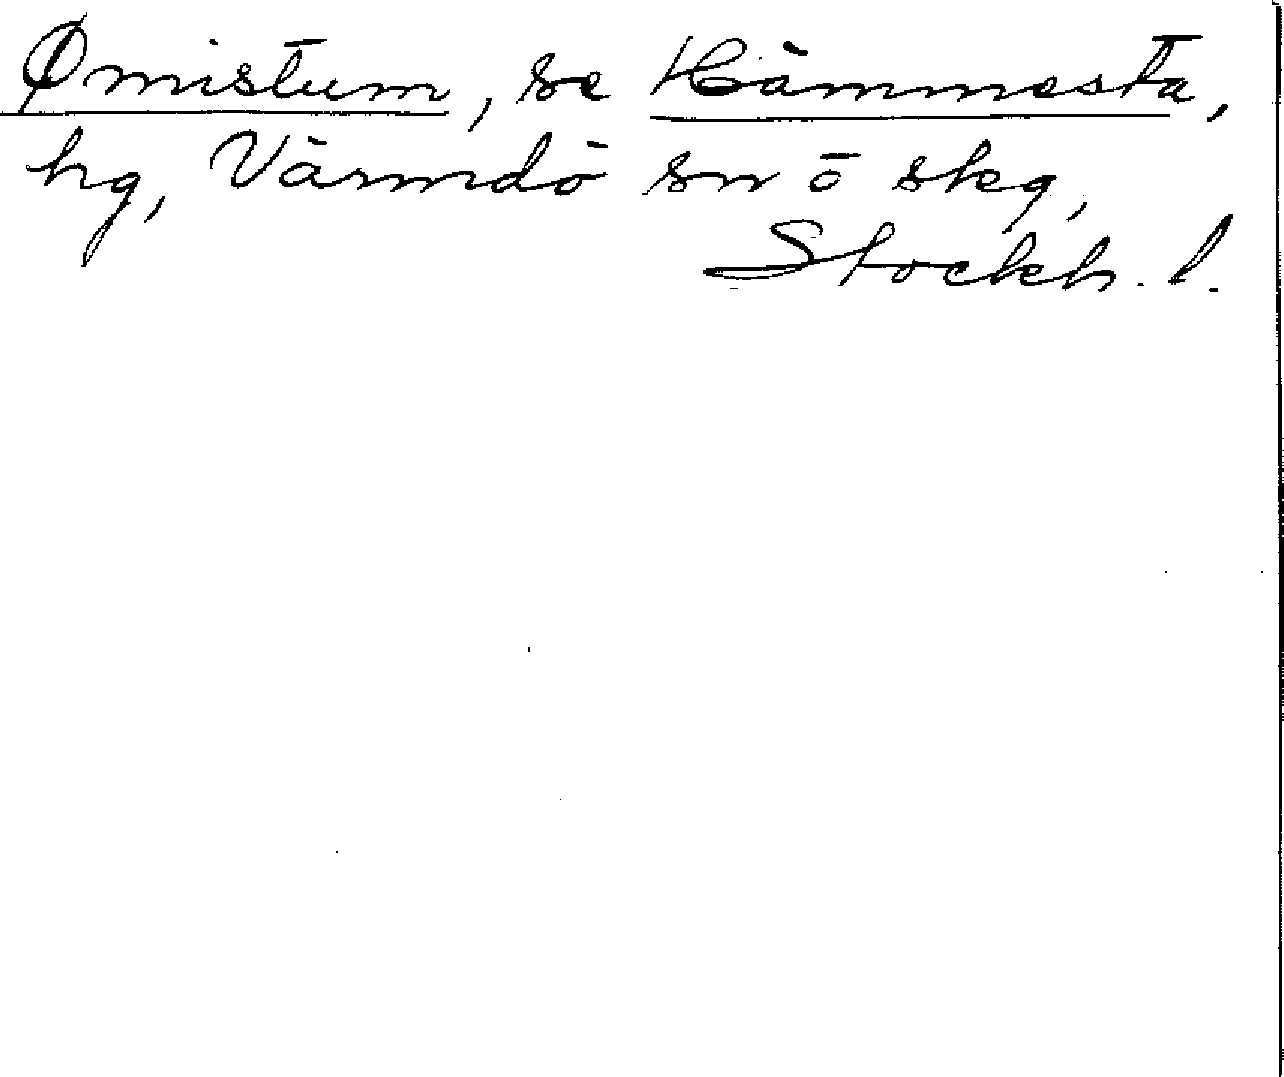 Ømistum, se Hämmesta,
hg, Värmdö sn o skg,
Stockh. l.